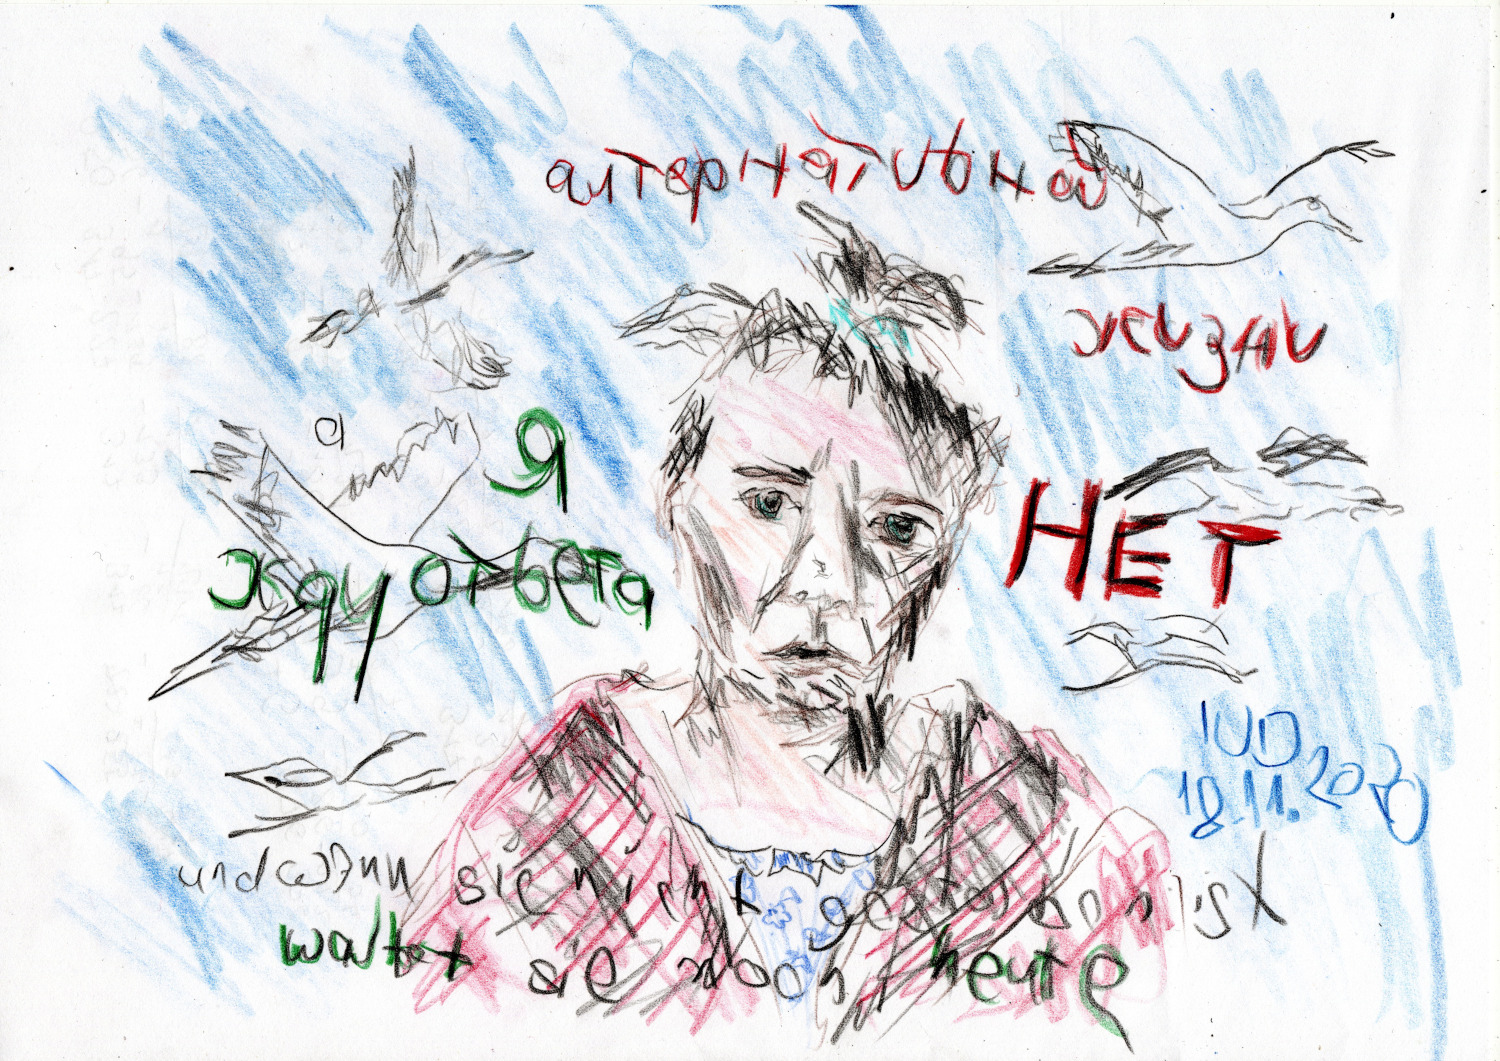 альтернативной
жизни
НЕТ
а
Я
жду ответа
IUD
18.11.2020
und wenn sie nicht gestorben ist
wartet sie noch heute